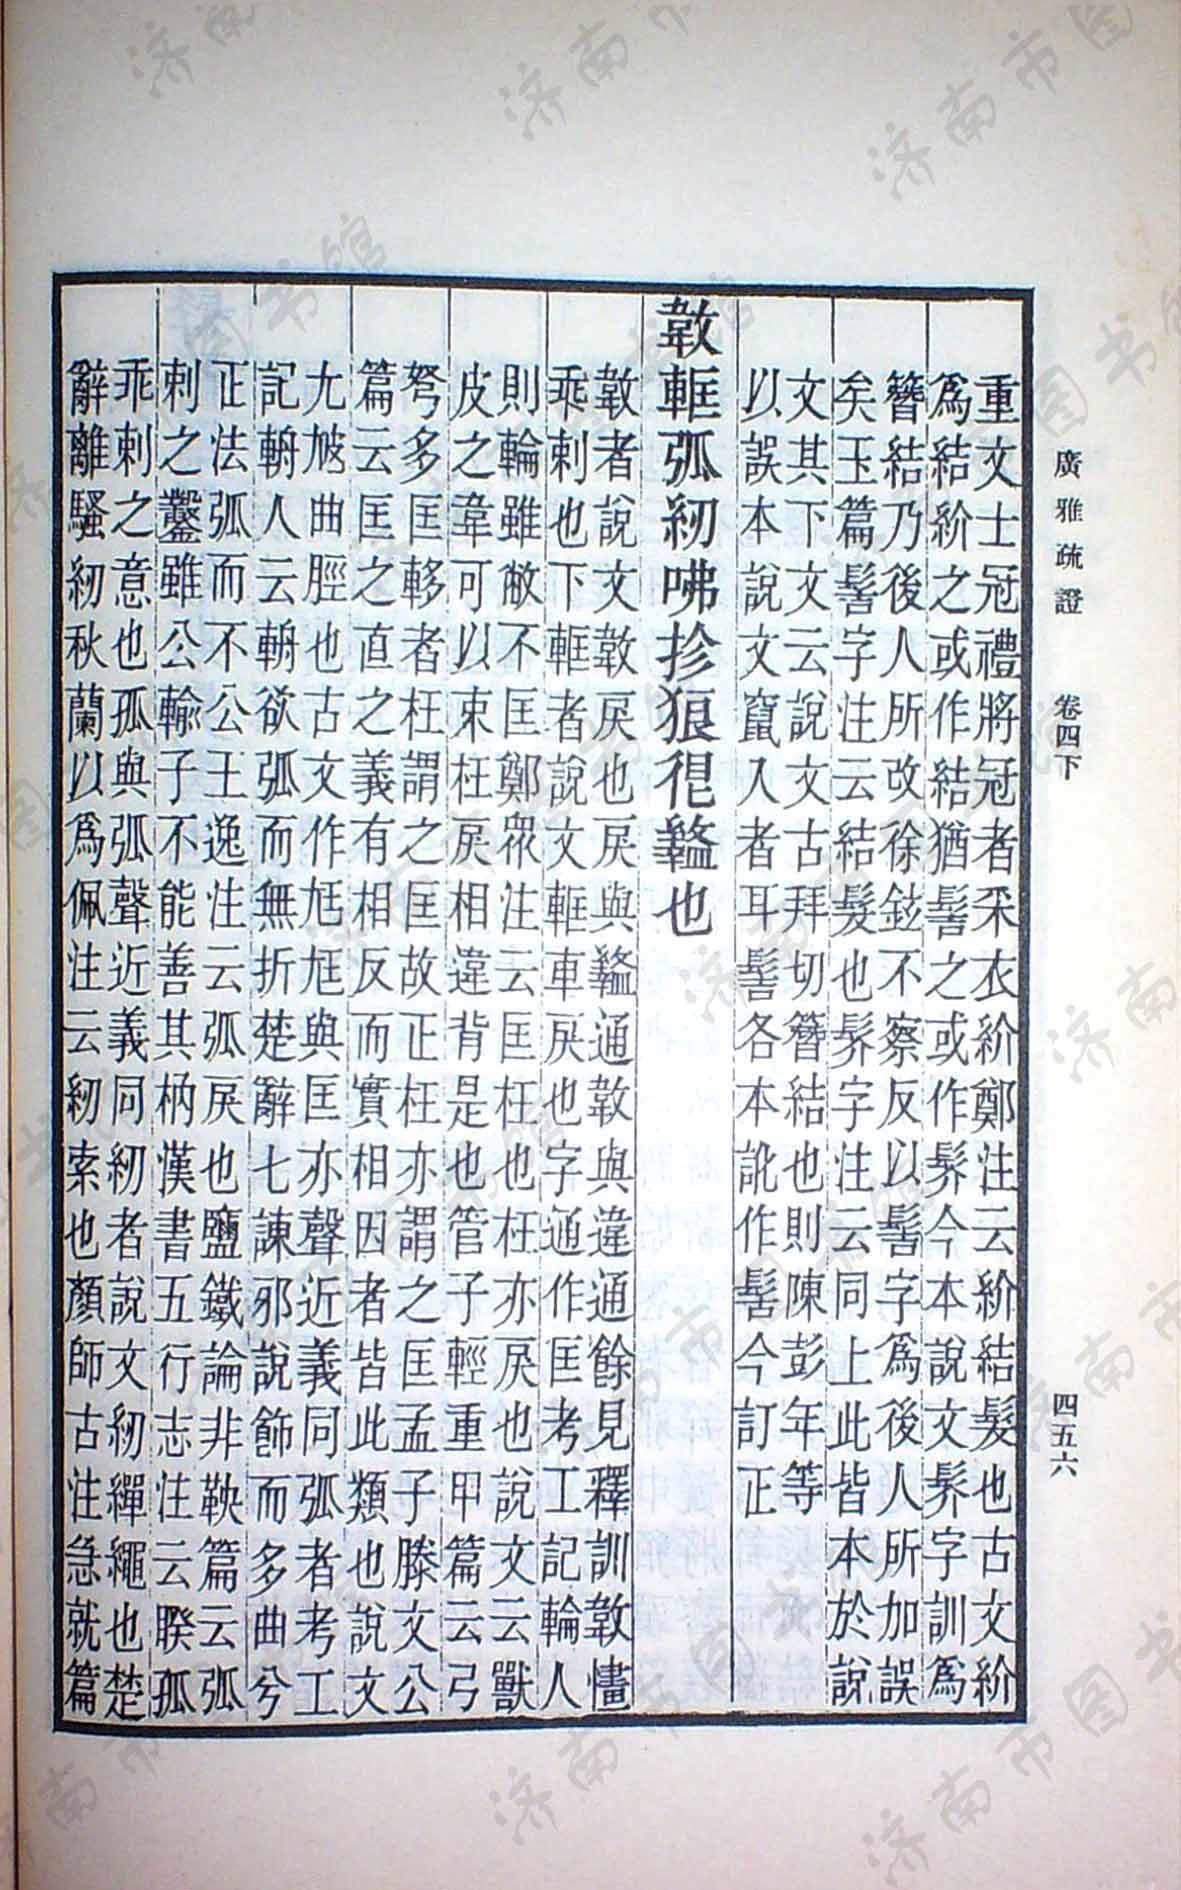 廣雅疏證　卷四下　四五六
重文士冠禮將冠者采衣紒鄭注云紒結髮也古文紒
爲結紒之或作結猶髻之或作䯰今本說文䯰字訓爲
簪結乃後人所改徐鉉不察反以髻字爲後人所加誤
矣玉篇髻字注云結髮也䯰字注云同上此皆本於說
文其下文云說文古拜切簪結也則陳彭年等
以誤本說文竄入者耳髻各本訛作髻今訂正
𢾁軭弧紉咈抮狼很盭也
𢾁者說文𢾁戾也戾與盭通𢾁與違通餘見釋訓𢾁㦎
乖剌也下軭者說文軭車戾也字通作匡考工記輪人
則輪雖敝不匡鄭眾注云匡枉也枉亦戾也說文云獸
皮之韋可以束枉戾相違背是也管子輕重甲篇云弓
弩多匡䡔者枉謂之匡故正枉亦謂之匡孟子滕文公
篇云匡之直之義有相反而實相因者皆此類也說文
尢㝿曲脛也古文作尪尪與匡亦聲近義同弧者考工
記輈人云輈欲弧而無折楚辭七諫邪說飾而多曲兮
正法弧而不公王逸注云弧戾也鹽鐵論非鞅篇云弧
剌之鑿雖公輸子不能善其枘漢書五行志注云睽孤
乖剌之意也孤與弧聲近義同紉者說文紉繟繩也楚
辭離騷紉秋蘭以爲佩注云紉索也顏師古注急就篇